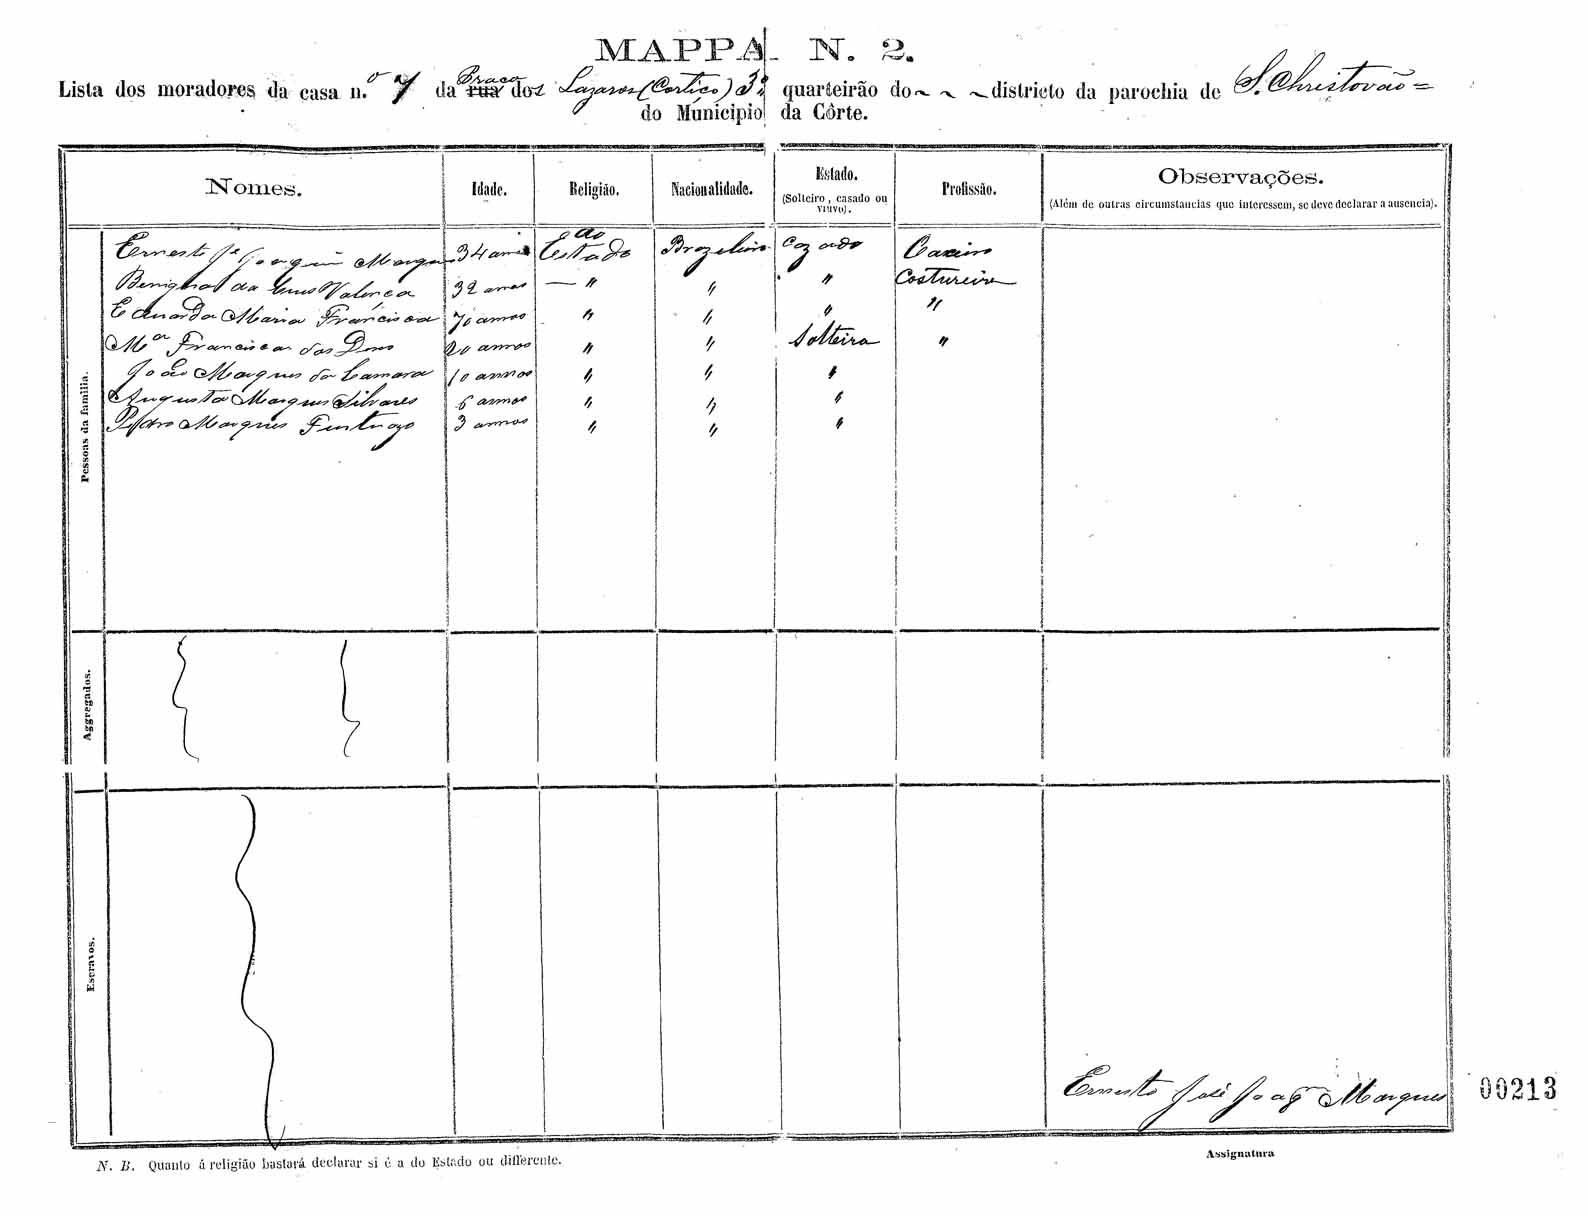 MAPPA N. 2.
Lista dos moradores da casa n.º 7 da Praça rua dos Lazaros (Cortiço) 3º quarteirão do ~ ~ ~ districto da parochia de S. Christovão =
do Municipio da Côrte.
Nomes. Idade. Religião. Nacionalidade. Estado. (Solteiro, casado ou viuvo). Profissão. Observações. (Além de outras circumstancias que interessem, se deve declarar a ausencia).
Pessoas da familia.
Ernesto Je Joaquim Marques 34 annos do Estado Brazileiro Cazado Caxeiro
Benigna da Valença 32 annos — " " " Costureira
Eduarda Maria Francisca 70 annos " " " "
Ma Francisca das Dores 20 annos " " Solteira "
João Marques da Camara 10 annos " " "
Augusta Marques Silvares 6 annos " " "
Pedro Marques 3 annos " " "
Aggregados.
Escravos.
Ernesto José Joaqm Marques
00213
Assignatura
N. B. Quanto á religião bastará declarar si é a do Estado ou differente.